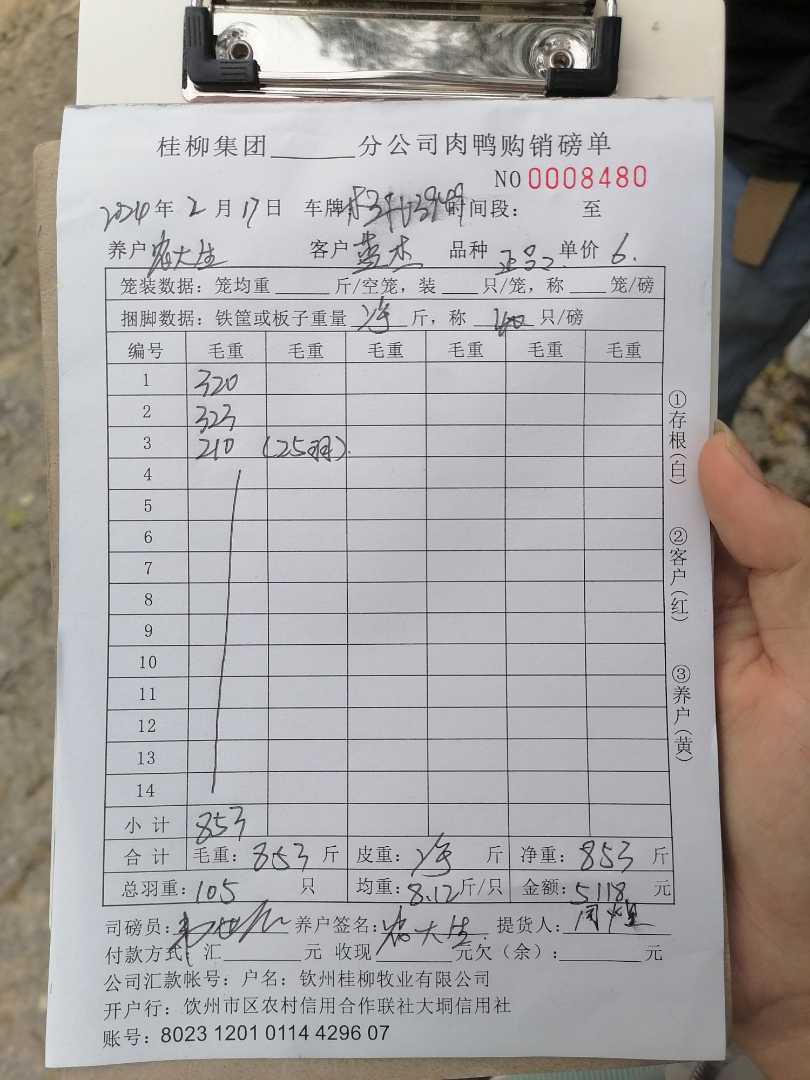 桂柳集团______分公司肉鸭购销磅单
NO 0008480
2024年 2月 17日 车牌 时间段： 至
养户 农大生 客户 蓝杰 品种 正品 单价 6.
笼装数据：笼均重____斤/空笼，装___只/笼，称___笼/磅
捆脚数据：铁筐或板子重量 净 斤，称 40 只/磅
编号 毛重 毛重 毛重 毛重 毛重 毛重
1 320
2 323
3 210 (25羽).
4
5
6
7
8
9
10
11
12
13
14
小计 853
合计 毛重：853斤 皮重：净 斤 净重：853斤
总羽重：105 只 均重：8.12斤/只 金额：5118元
司磅员： 养户签名：农大生 提货人：
付款方式：汇______元 收现______元欠（余）：______元
公司汇款帐号：户名：钦州桂柳牧业有限公司
开户行：饮州市区农村信用合作联社大垌信用社
账号：8023 1201 0114 4296 07
①存根(白)
②客户(红)
③养户(黄)